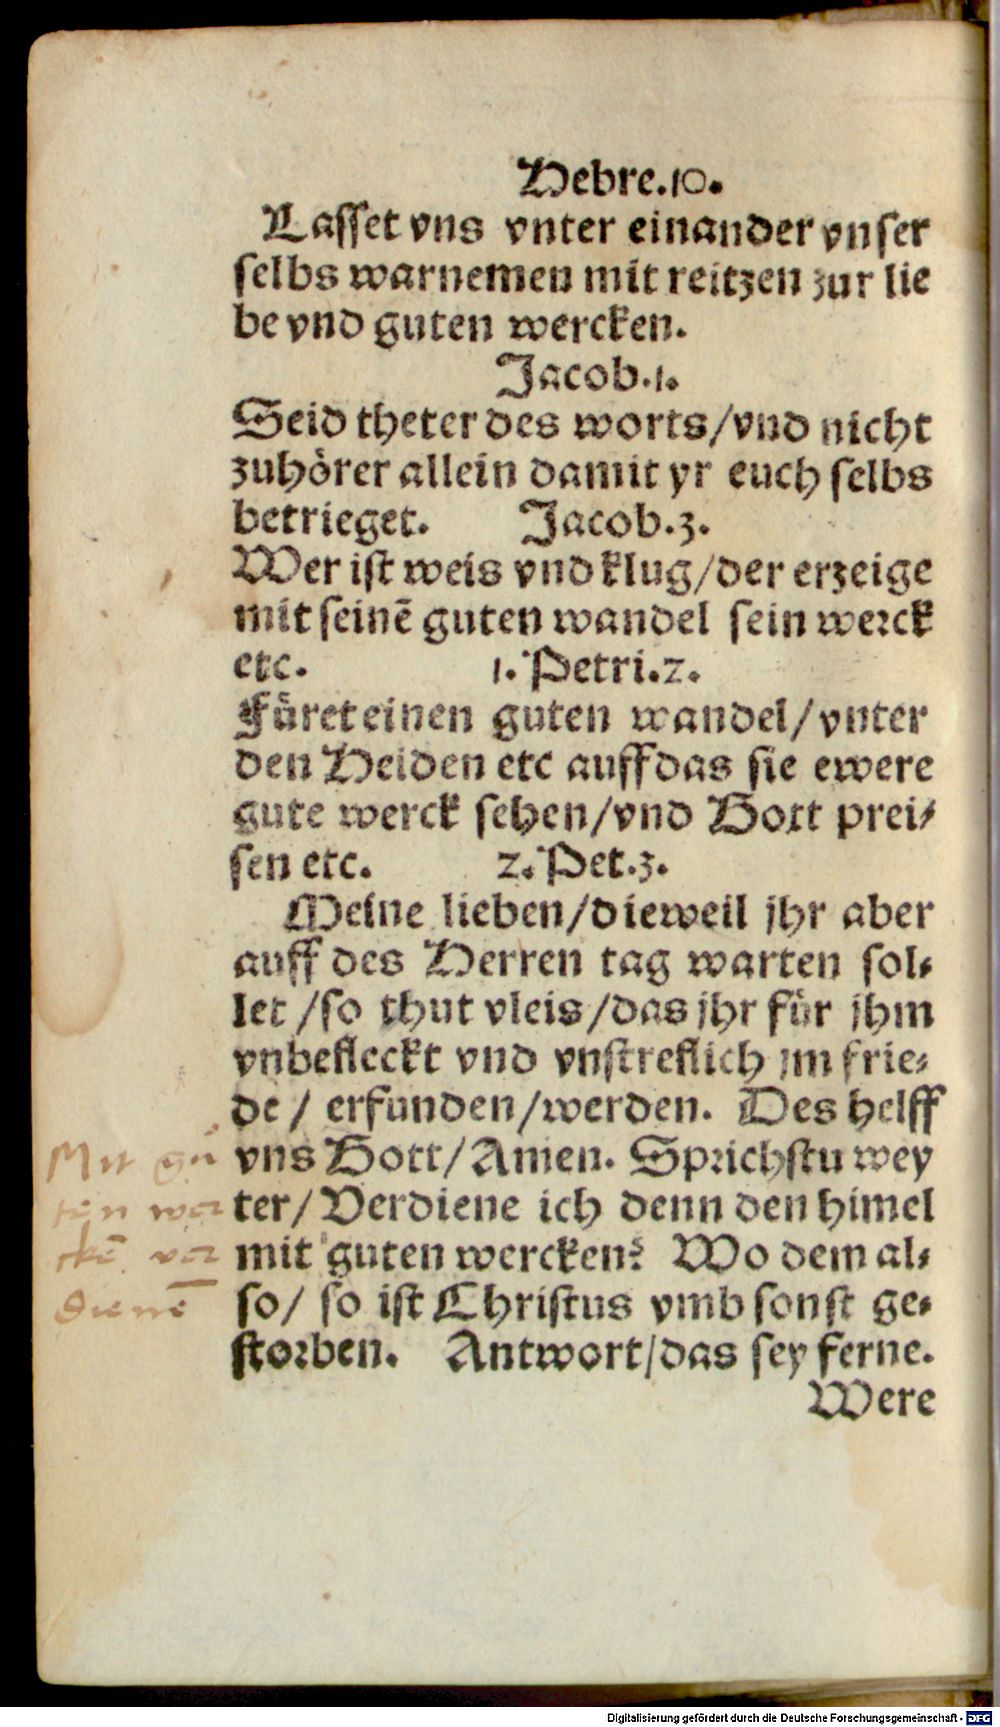 Hebre.10.
Lasset vns vnter einander vnser
selbs warnemen mit reitzen zur lie
be vnd guten wercken.
Jacob.1.
Seid theter des worts/vnd nicht
zuhörer allein damit yr euch selbs
betrieget. Jacob.3.
Wer ist weis vnd klug/der erzeige
mit seinē guten wandel sein werck
etc. 1. Petri.2.
Füret einen guten wandel/vnter
den Heiden etc auffdas sie ewere
gute werck sehen/vnd Gott prei⸗
sen etc. 2. Pet.3.
Meine lieben/dieweil jhr aber
auff des Herren tag warten sol⸗
let /so thut vleis/das jhr für jhm
vnbefleckt vnd vnstreflich jm frie⸗
de/ erfunden/werden. Des helff
vns Gott/Amen. Sprichstu wey
ter/Verdiene ich denn den himel
mit guten wercken? Wo dem al⸗
so/ so ist Christus vmb sonst ge⸗
storben. Antwort/das sey ferne.
Were
Mit gu
ten wer
ckē ver
dienē
Digitalisierung gefördert durch die Deutsche Forschungsgemeinschaft - DFG